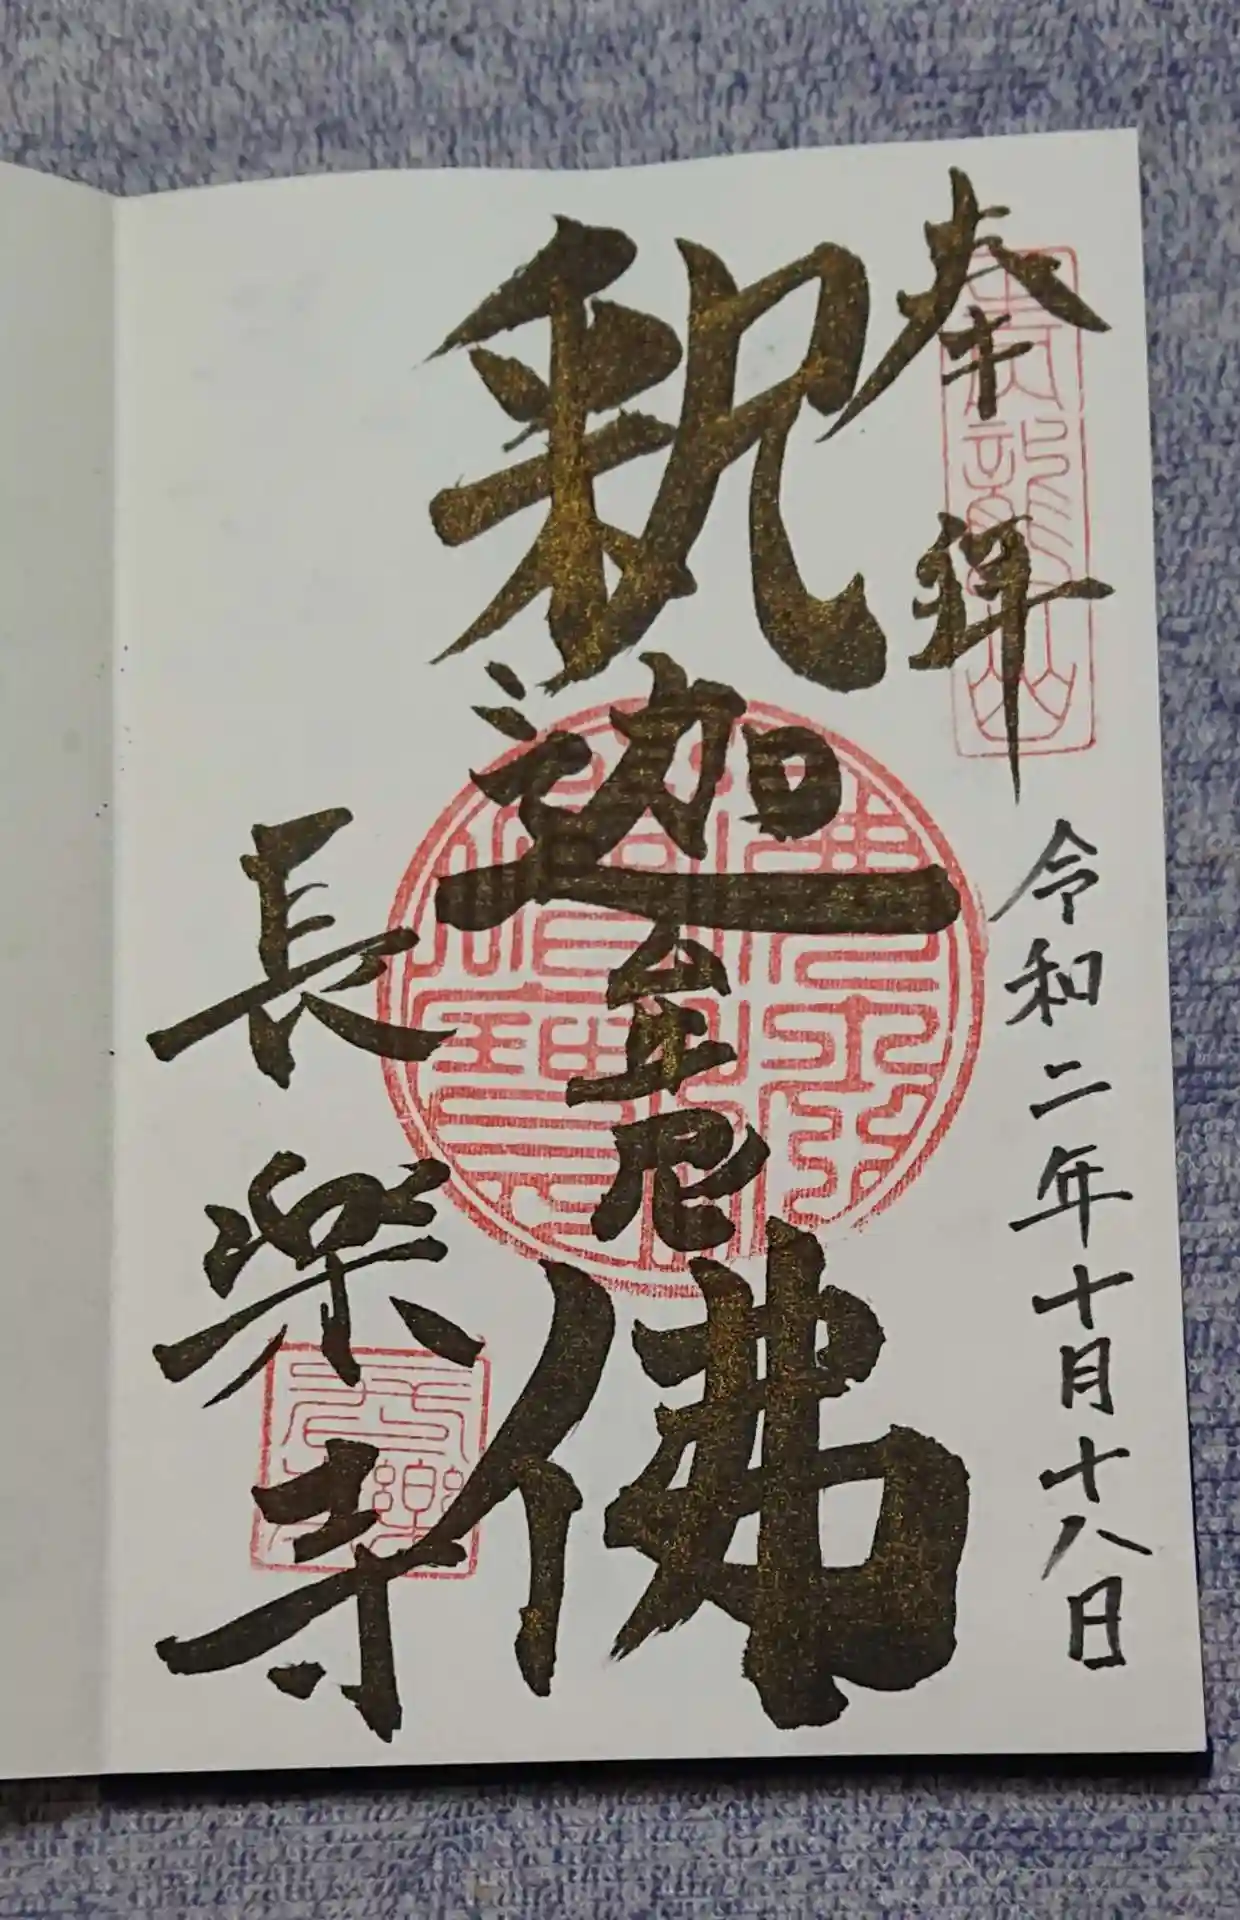 奉拝
令和二年十月十八日
釈迦牟尼佛
長楽寺